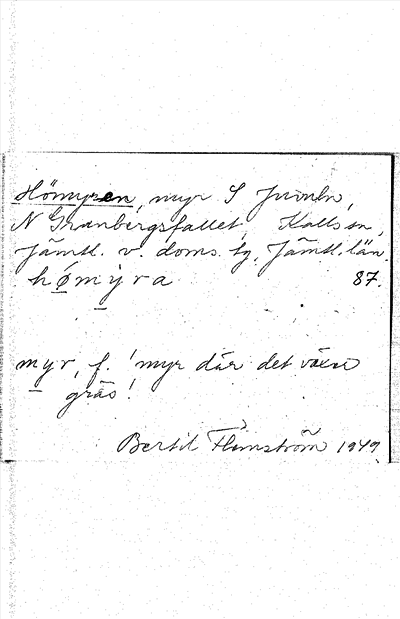 Hömyren, myr S
N Granbergsfallet, Kalls sn,
Jämtl. v. doms. tg, Jämtl. län.
hø̱my̱ra 87.
my̱r, f. 'myr där det växer
gräs'.
Bertil Flemström 1949.